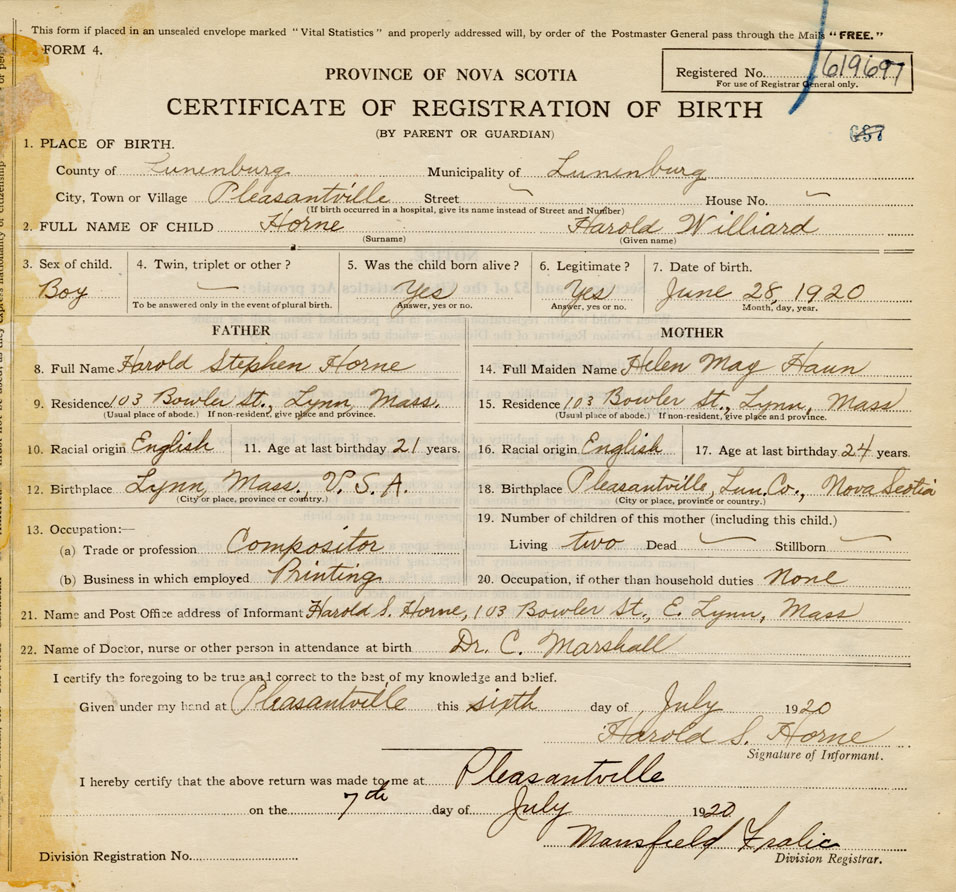 This form if placed in an unsealed envelope marked "Vital Statistics" and properly addressed will, by order of the Postmaster General pass through the Mails "FREE."
FORM 4.
PROVINCE OF NOVA SCOTIA
Registered No. 619697
For use of Registrar General only.
CERTIFICATE OF REGISTRATION OF BIRTH
(BY PARENT OR GUARDIAN)
687
1. PLACE OF BIRTH.
County of Lunenburg Municipality of Lunenburg
City, Town or Village Pleasantville Street — House No. —
(If birth occurred in a hospital, give its name instead of Street and Number)
2. FULL NAME OF CHILD Horne Harold Williard
(Surname) (Given name)
3. Sex of child. 4. Twin, triplet or other? 5. Was the child born alive? 6. Legitimate? 7. Date of birth.
Boy — Yes Yes June 28, 1920
To be answered only in the event of plural birth. Answer, yes or no. Answer, yes or no. Month, day, year.
FATHER
8. Full Name Harold Stephen Horne
9. Residence 103 Bowler St., Lynn, Mass.
(Usual place of abode.) If non-resident, give place and province.
10. Racial origin English 11. Age at last birthday 21 years.
12. Birthplace Lynn, Mass., U.S.A.
(City or place, province or country.)
13. Occupation:—
(a) Trade or profession Compositor
(b) Business in which employed Printing
MOTHER
14. Full Maiden Name Helen May Haun
15. Residence 103 Bowler St., Lynn, Mass
(Usual place of abode.) If non-resident, give place and province.
16. Racial origin English 17. Age at last birthday 24 years.
18. Birthplace Pleasantville, Lun. Co., Nova Scotia
(City or place, province or country.)
19. Number of children of this mother (including this child.)
Living two Dead — Stillborn —
20. Occupation, if other than household duties None
21. Name and Post Office address of Informant Harold S. Horne, 103 Bowler St., E. Lynn, Mass
22. Name of Doctor, nurse or other person in attendance at birth Dr. C. Marshall
I certify the foregoing to be true and correct to the best of my knowledge and belief.
Given under my hand at Pleasantville this sixth day of July 1920
Harold S. Horne
Signature of Informant.
I hereby certify that the above return was made to me at Pleasantville
on the 7th day of July 1920
Mansfield Fralic
Division Registration No. Division Registrar.